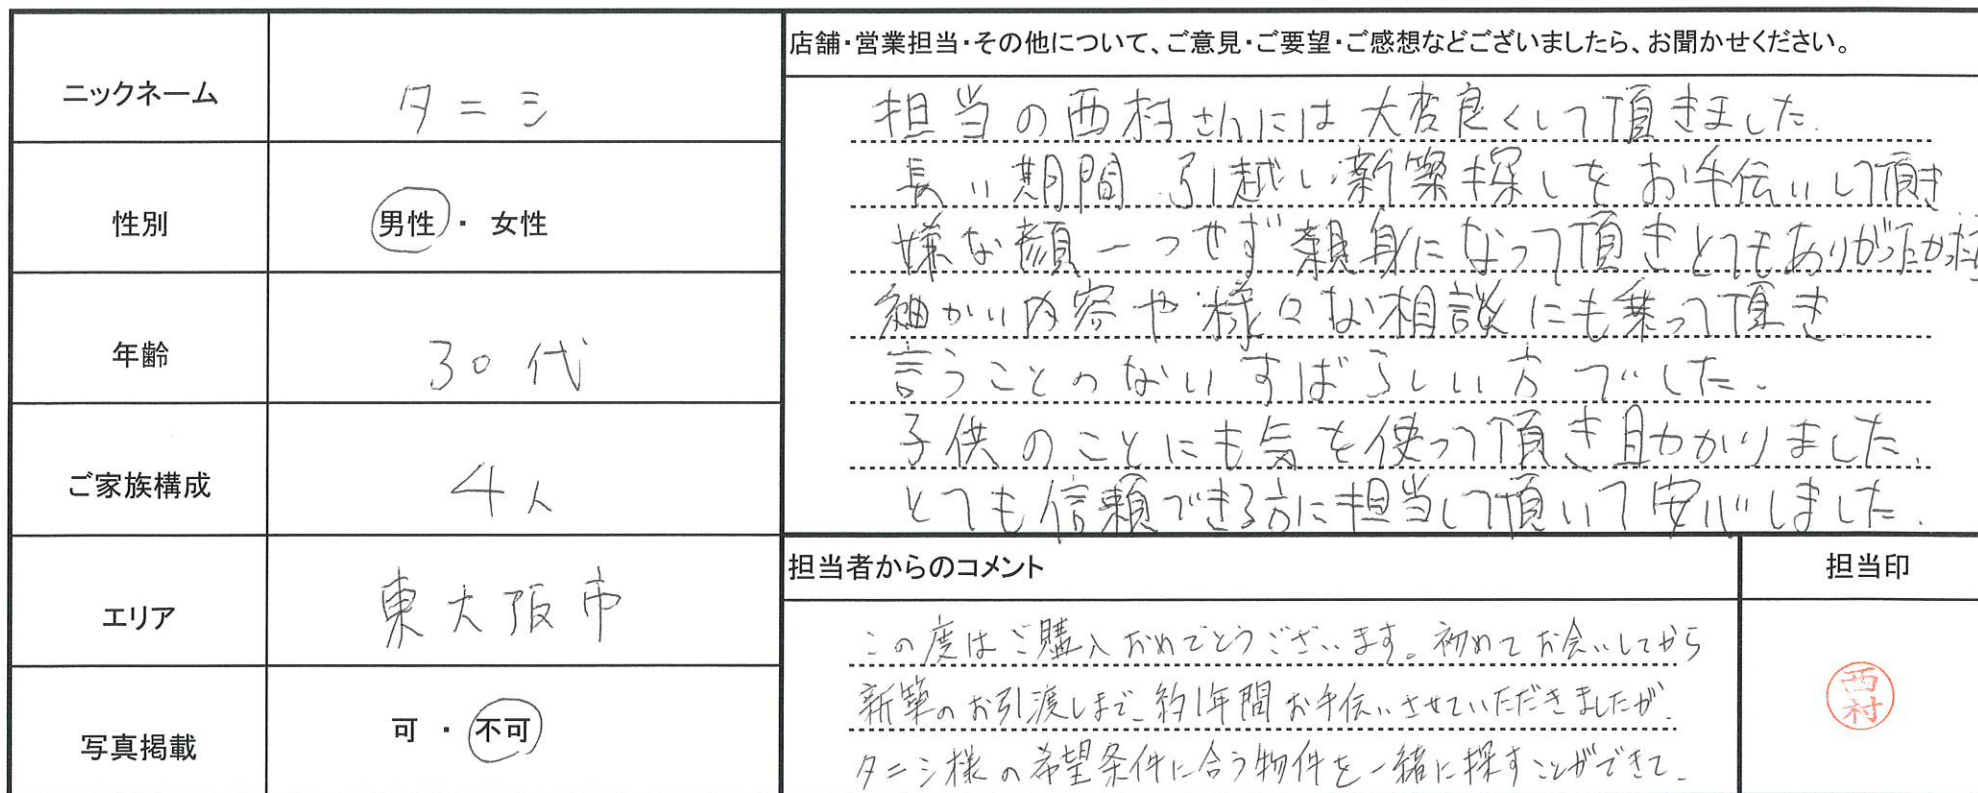 ニックネーム
タニシ
性別
男性・女性
年齢
30代
ご家族構成
4人
エリア
東大阪市
写真掲載
可・不可
店舗・営業担当・その他について、ご意見・ご要望・ご感想などございましたら、お聞かせください。
担当の西村さんには大変良くして頂きました.
長い期間、引越し、新築探しをお手伝いして頂き
嫌な顔一つせず親身になって頂きとてもありがったかった
細かい内容や様々な相談にも乗って頂き
言うことのないすばらしい方でした.
子供のことにも気を使って頂き助かりました.
とても信頼できる方に担当して頂いて安心しました.
担当者からのコメント
この度はご購入おめでとうございます。初めてお会いしてから
新築のお引渡しまで、約1年間お手伝いさせていただきましたが、
タニシ様の希望条件に合う物件を一緒に探すことができて、
担当印
西村